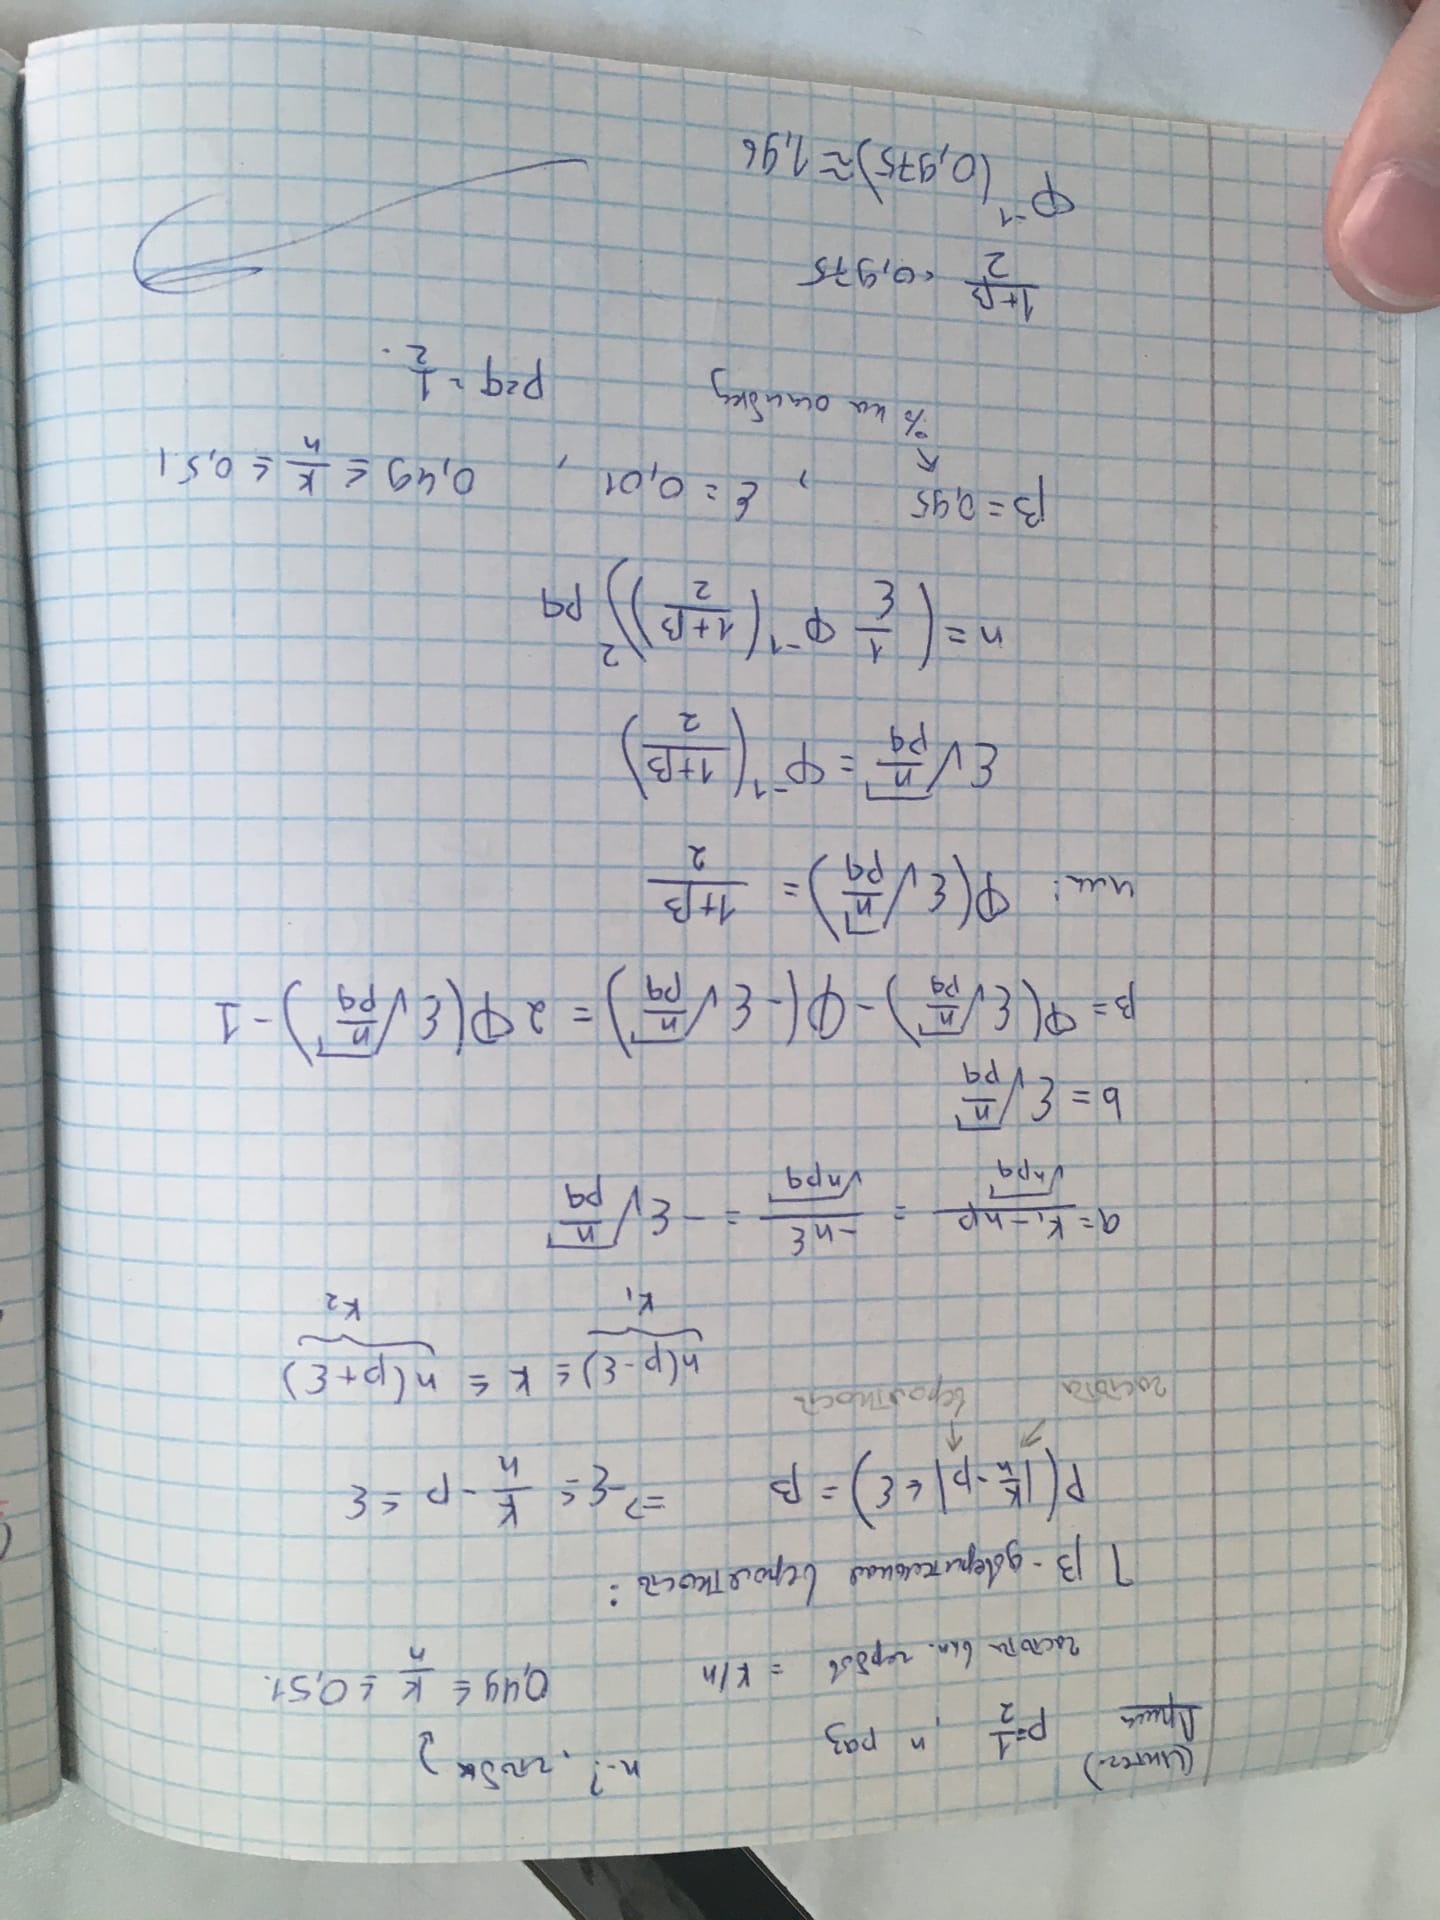 (Интег.)
Прим p=1/2, n раз n-?, чтобы
частота вып. гербов = k/n 0,49 ≤ k/n ≤ 0,51.
⅂ β-доверительная вероятность:
P(|k/n - p| ≤ ε) = β => -ε ≤ k/n - p ≤ ε
частота вероятность
n(p-ε) ≤ k ≤ n(p+ε)
k₁ k₂
a = (k₁-np)/√(npq) = -nε/√(npq) = -ε√(n/pq)
b = ε√(n/pq)
β = Φ(ε√(n/pq)) - Φ(-ε√(n/pq)) = 2Φ(ε√(n/pq)) - 1
или: Φ(ε√(n/pq)) = (1+β)/2
ε√(n/pq) = Φ⁻¹((1+β)/2)
n = (1/ε Φ⁻¹((1+β)/2))² pq
β = 0,95, ε = 0,01, 0,49 ≤ k/n ≤ 0,51
% на ошибку p=q=1/2.
(1+β)/2 = 0,975
Φ⁻¹(0,975) ≈ 1,96